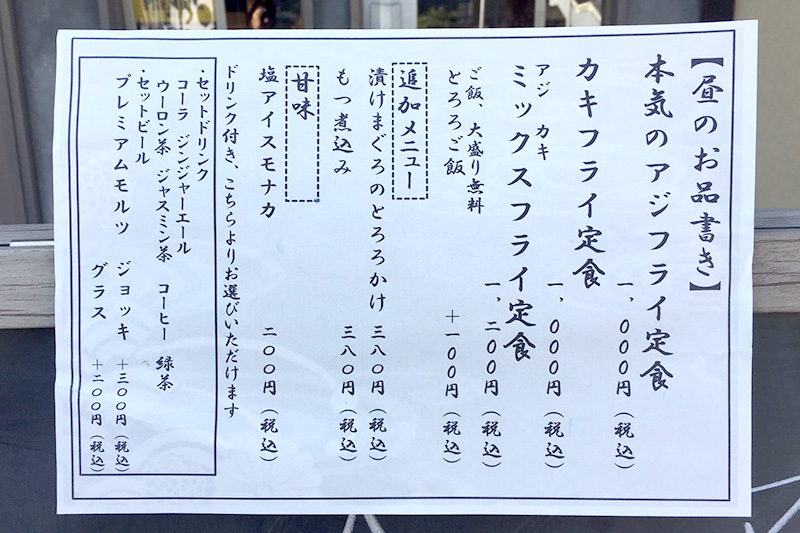 【昼のお品書き】
本気のアジフライ定食
一、〇〇〇円(税込)
カキフライ定食
一、〇〇〇円(税込)
アジ カキ
ミックスフライ定食
一、二〇〇円(税込)
ご飯、大盛り無料
とろろご飯 +一〇〇円(税込)
追加メニュー
漬けまぐろのとろろかけ 三八〇円(税込)
もつ煮込み 三八〇円(税込)
甘味
塩アイスモナカ 二〇〇円(税込)
ドリンク付き、こちらよりお選びいただけます
・セットドリンク
コーラ ジンジャーエール
ウーロン茶 ジャスミン茶 コーヒー 緑茶
・セットビール
プレミアムモルツ ジョッキ +三〇〇円(税込)
グラス +二〇〇円(税込)